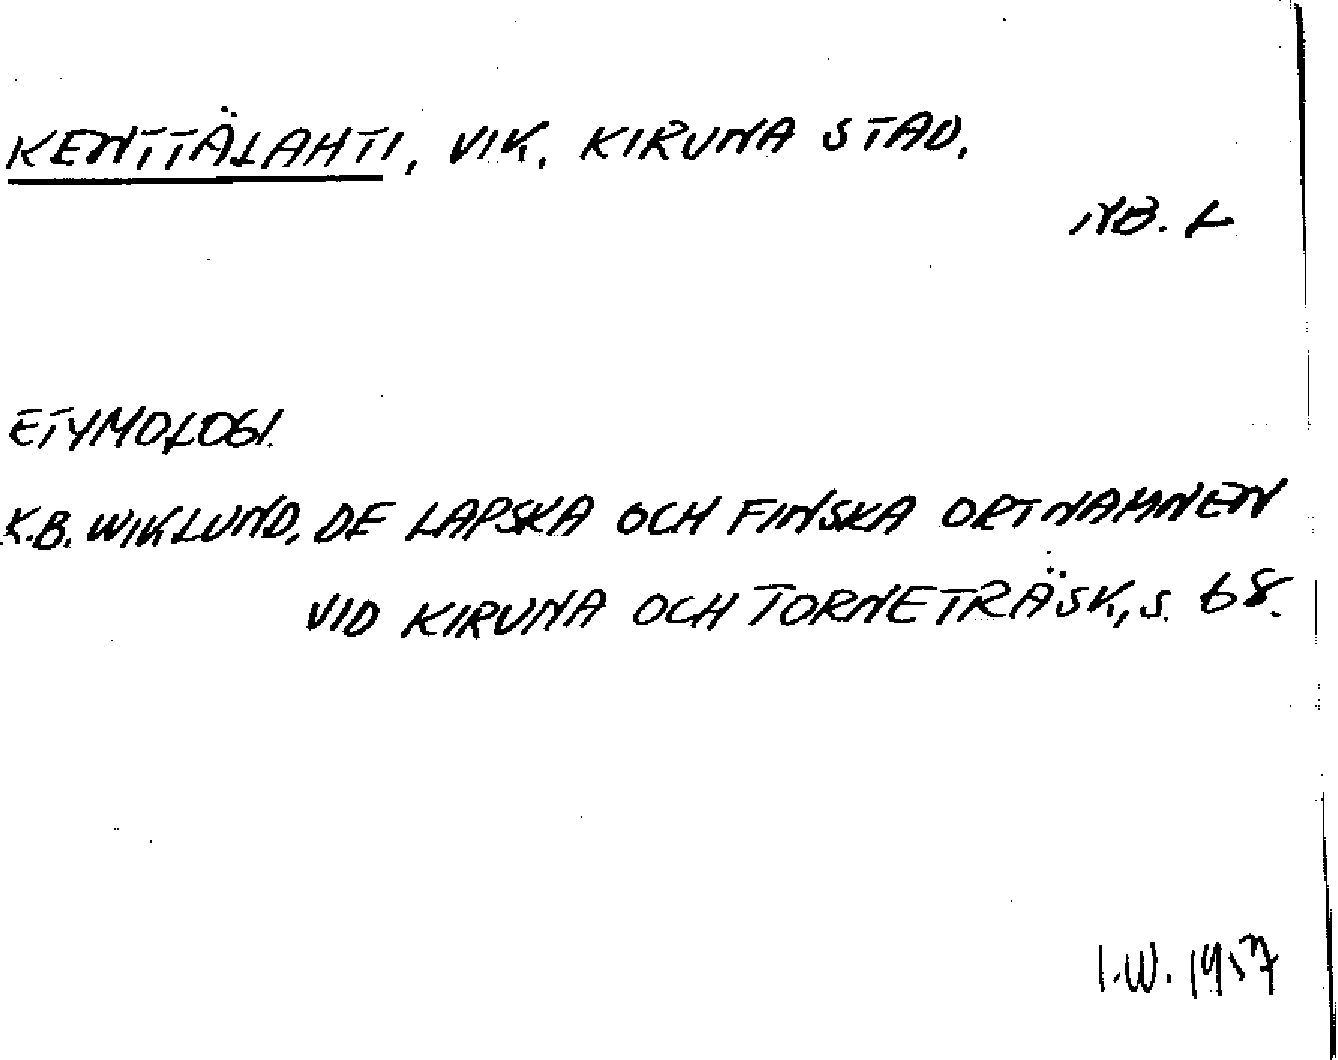 KENTTÄLAHTI, VIK. KIRUNA STAD.
NB. L
ETYMOLOGI.
K.B. WIKLUND, DE LAPSKA OCH FINSKA ORTNAMNEN
VID KIRUNA OCH TORNETRÄSK, S. 68.
I.W.